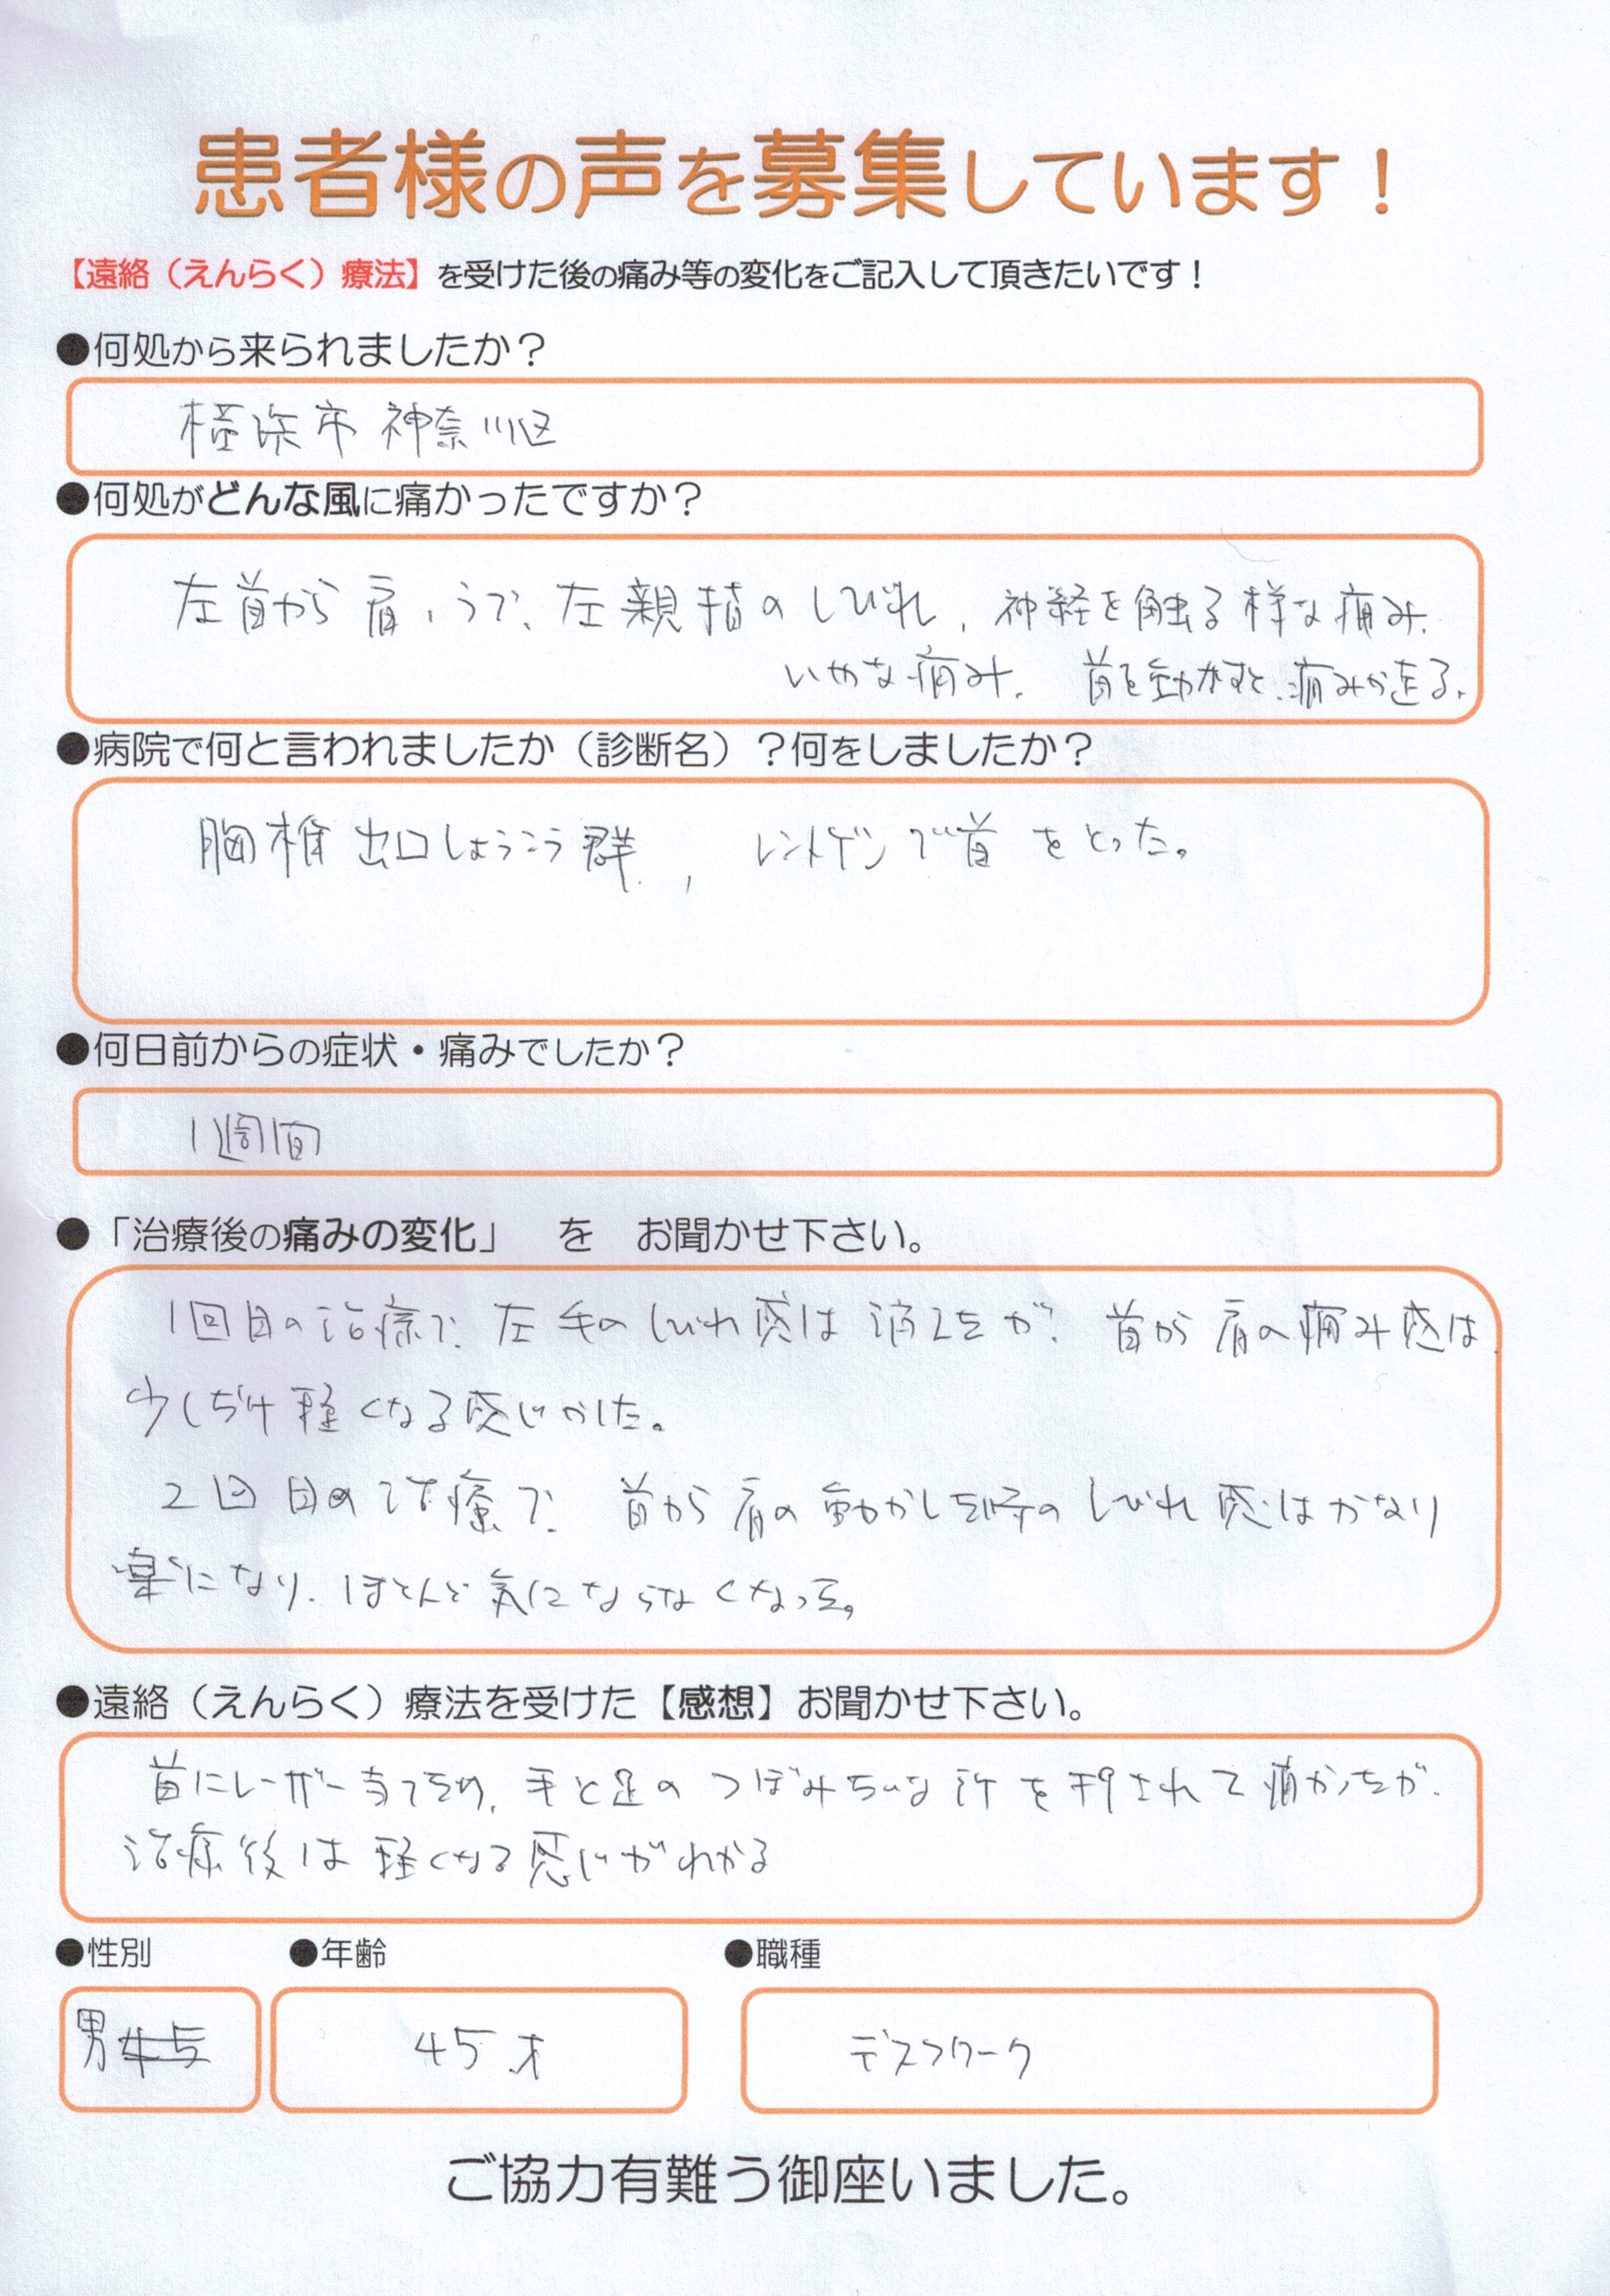 患者様の声を募集しています！
【遠絡（えんらく）療法】を受けた後の痛み等の変化をご記入して頂きたいです！
●何処から来られましたか？
横浜市 神奈川区
●何処がどんな風に痛かったですか？
左首から肩、うで、左親指のしびれ、神経を触る様な痛み.
いやな痛み. 首を動かすと、痛みが走る.
●病院で何と言われましたか（診断名）？何をしましたか？
胸椎出口しょうこう群, レントゲンで首をとった。
●何日前からの症状・痛みでしたか？
1週間
●「治療後の痛みの変化」 を お聞かせ下さい。
1回目の治療で、左手のしびれ感は消えたが、首から肩の痛み感は
少しだけ軽くなる感じがした。
2回目の治療で、首から肩の動かした時のしびれ感はかなり
楽になり、ほとんど気にならなくなった。
●遠絡（えんらく）療法を受けた【感想】お聞かせ下さい。
首にレーザー当てたり、手と足のつぼみたいな所を押されて痛かったが、
治療後は軽くなる感じがわかる
●性別 ●年齢 ●職種
男 45才 デスクワーク
ご協力有難う御座いました。